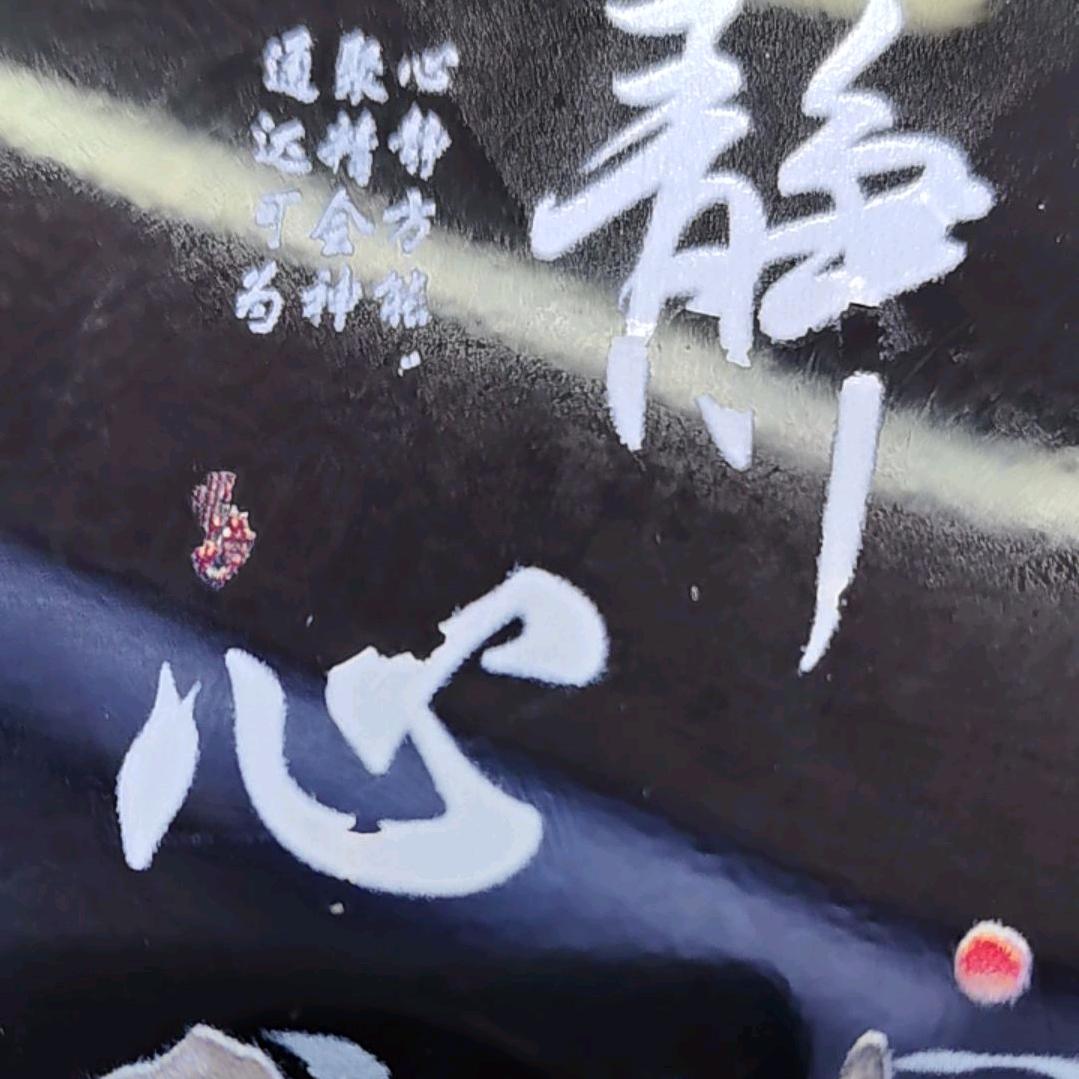 静
心
心静方能
聚精会神
道远可为